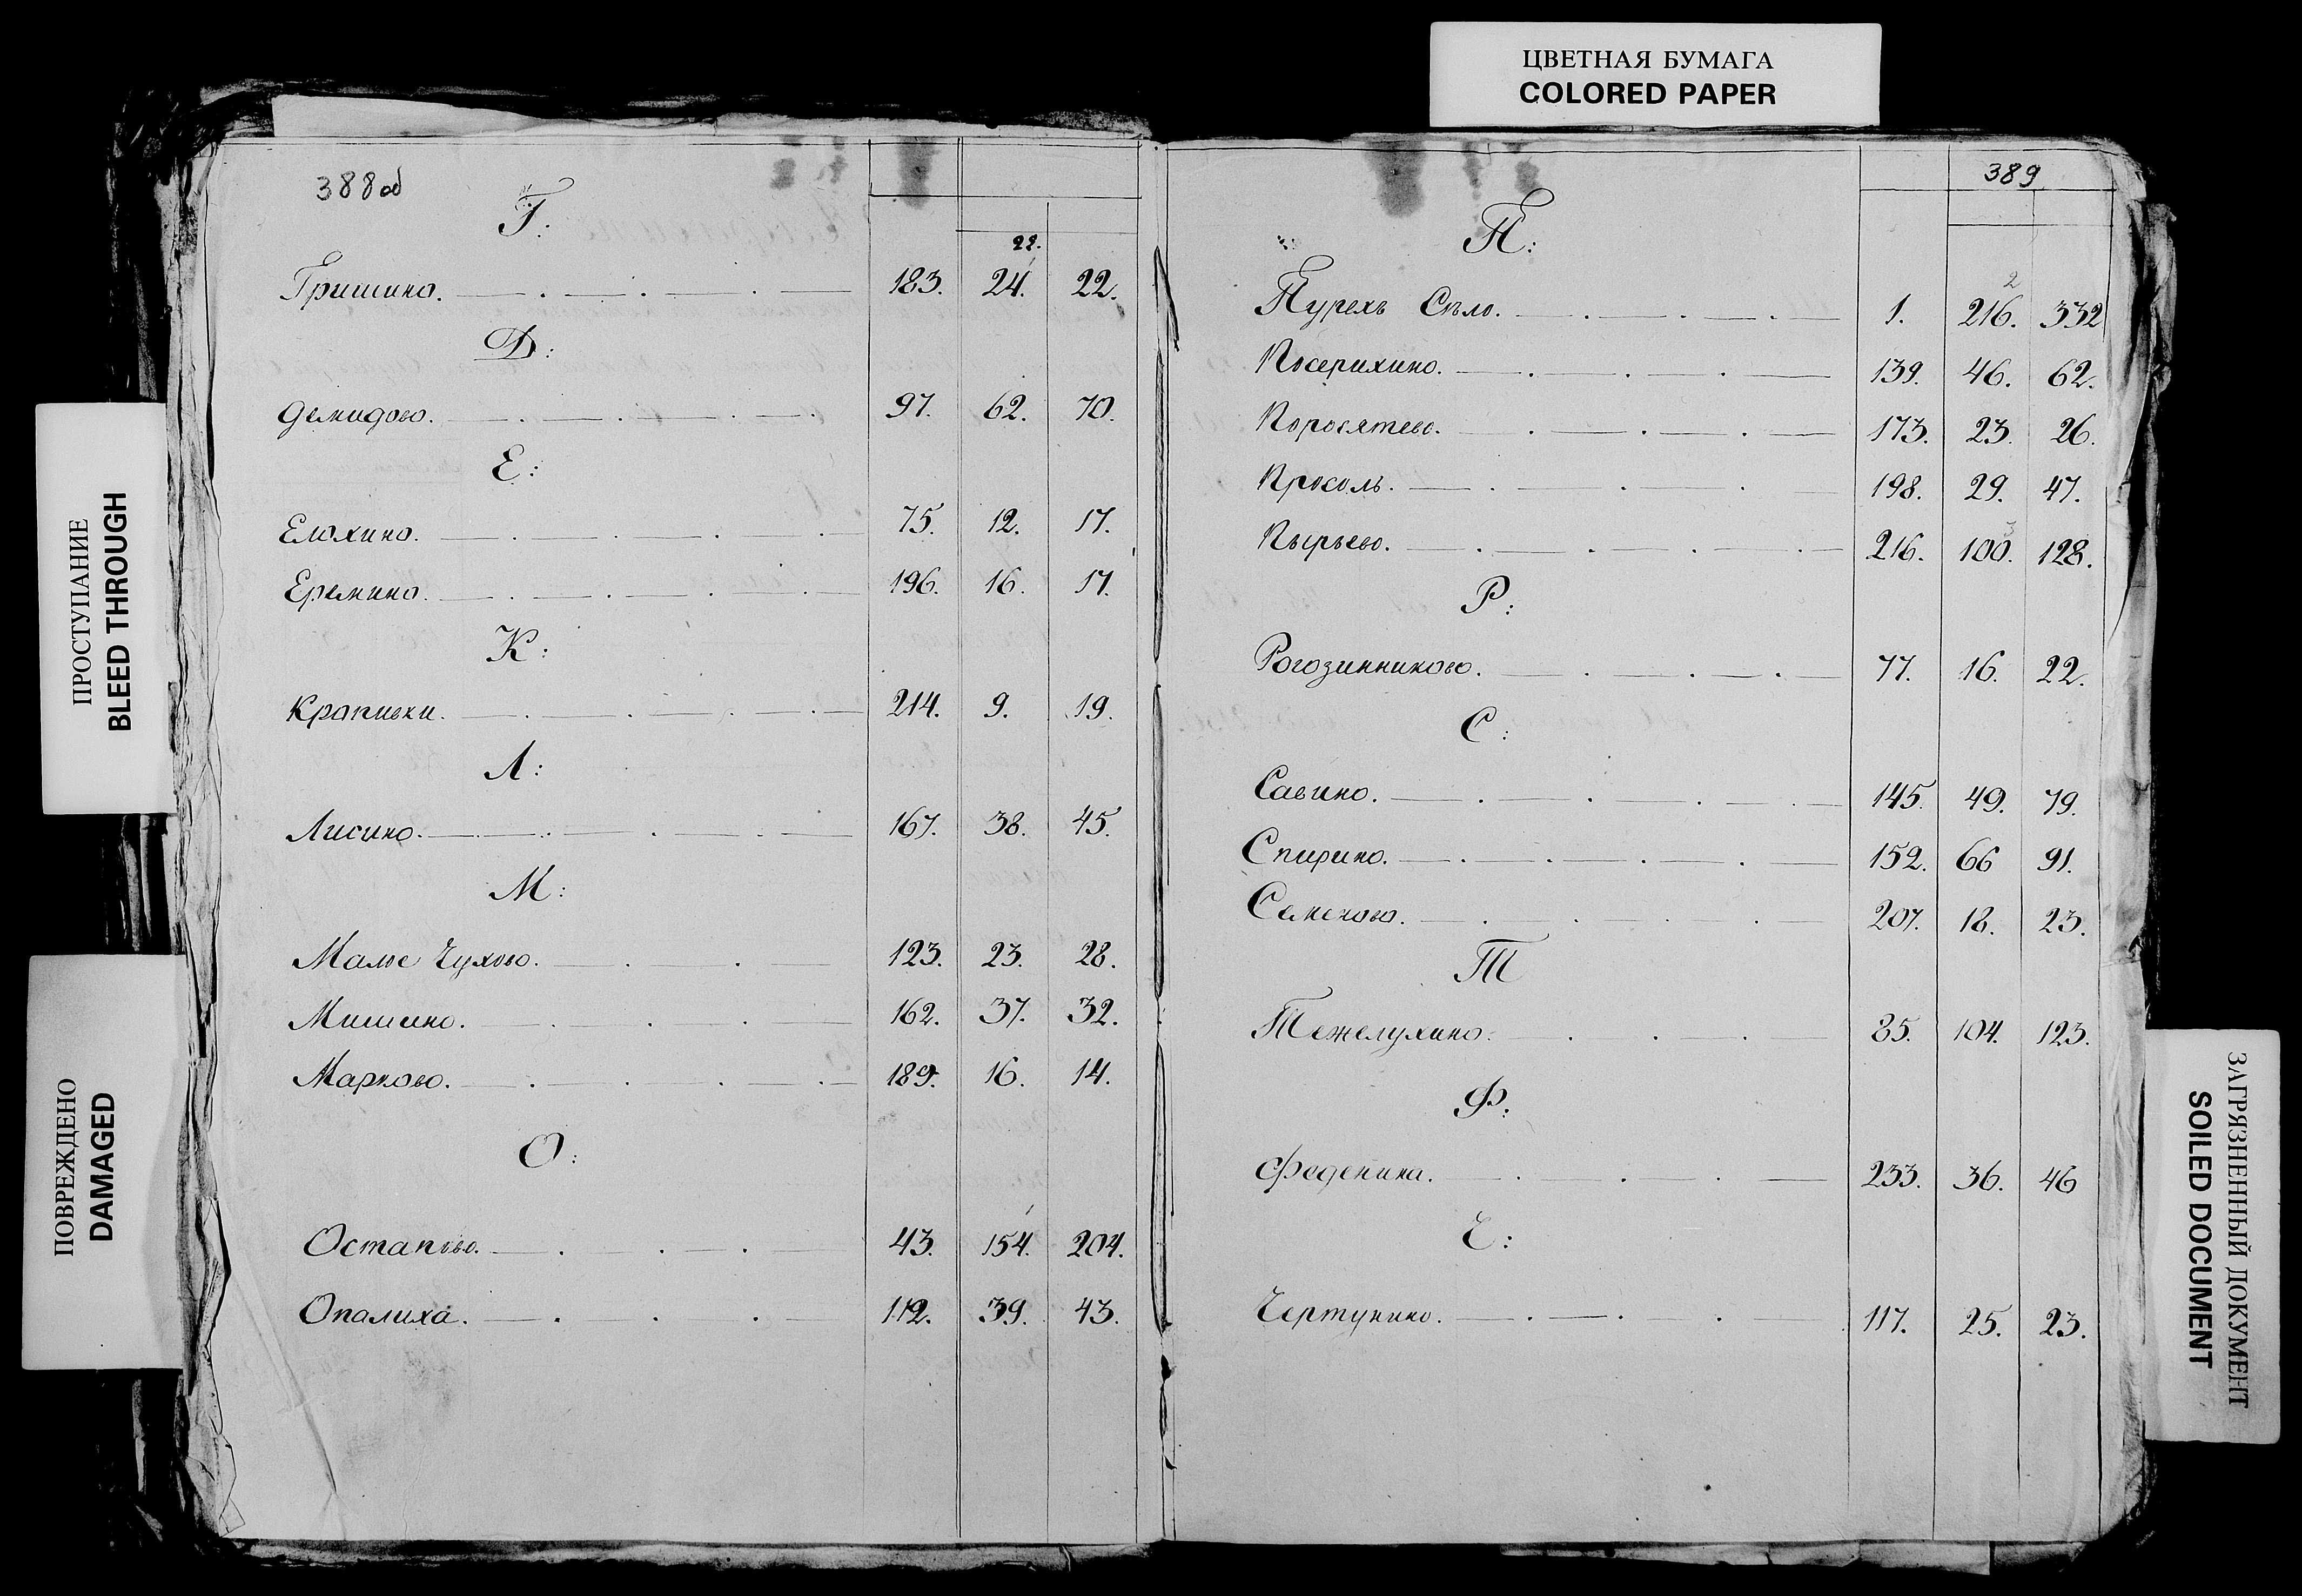 ЦВЕТНАЯ БУМАГА
COLORED PAPER
ПРОСТУПАНИЕ
BLEED THROUGH
ПОВРЕЖДЕНО
DAMAGED
388 об
Г:
22.
Гришино. 183. 24. 22.
Д:
Демидово. 97. 62. 70.
Е:
Елохино. 75. 12. 17.
Еремино. 196. 16. 17.
К:
Крапивки. 214. 9. 19.
Л:
Лисино. 167. 38. 45.
М:
Малое Чухово. 123. 23. 28.
Мишино. 162. 37. 32.
Марково. 189. 16. 14.
О:
Остапово. 43. 154. 204.
Опалиха. 112. 39. 43.
389
П:
2
Пурехъ Село. 1. 216. 332
Посерихино. 139. 46. 62.
Поросятево. 173. 23. 26.
Просоль. 198. 29. 47.
3
Пырьево. 216. 100. 128.
Р:
Рогозинниково. 77. 16. 22.
С:
Савино. 145. 49. 79.
Спирино. 152. 66 91.
Семеново. 207. 18. 23.
Т
Тежелухино. 85. 104. 123.
Ф:
Феденина. 233. 36. 46
Ч:
Чертунино. 117. 25. 23.
ЗАГРЯЗНЕННЫЙ ДОКУМЕНТ
SOILED DOCUMENT